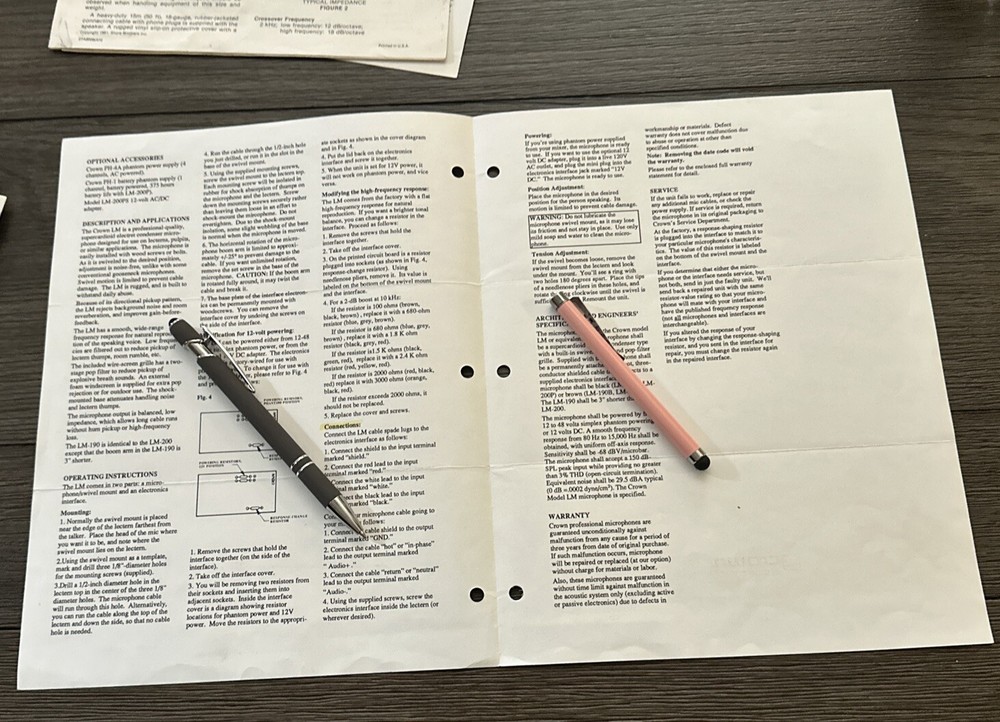 observed when handling equipment of this size and
weight.
A heavy-duty 15m (50 ft), 18-gauge, rubber-jacketed
connecting cable with phone plugs is supplied with the
speaker. A rugged vinyl slip-on protective cover with a
TYPICAL IMPEDANCE
FIGURE 2
Crossover Frequency
2 kHz; low frequency: 12 dB/octave
high frequency: 18 dB/octave
Printed in U.S.A.
OPTIONAL ACCESSORIES
Crown PH-4A phantom power supply (4
channels, AC powered).
Crown PH-1 battery phantom supply (1
channel, battery powered, 575 hours
battery life with LM-200P).
Model LM-200PS 12-volt AC/DC
adapter.
DESCRIPTION AND APPLICATIONS
The Crown LM is a professional-quality,
supercardioid electret condenser micro-
phone designed for use on lecterns, pulpits,
or similar applications. The microphone is
easily installed with wood screws or bolts.
As it is swiveled to the desired position,
adjustment is noise-free, unlike with some
conventional gooseneck microphones.
Swivel motion is limited to prevent cable
damage. The LM is rugged, and is built to
withstand daily abuse.
Because of its directional pickup pattern,
the LM rejects background noise and room
reverberation, and improves gain-before-
feedback.
The LM has a smooth, wide-range
frequency response for natural reproduc-
tion of the speaking voice. Low frequen-
cies are filtered out to reduce pickup of
lectern thumps, room rumble, etc.
The included wire-screen grille has a two-
stage pop filter to reduce pickup of
explosive breath sounds. An external
foam windscreen is supplied for extra pop
rejection or for outdoor use. The shock-
mounted base attenuates handling noise
and lectern thumps.
The microphone output is balanced, low
impedance, which allows long cable runs
without hum pickup or high-frequency
loss.
The LM-190 is identical to the LM-200
except that the boom arm in the LM-190 is
3" shorter.
OPERATING INSTRUCTIONS
The LM comes in two parts: a micro-
phone/swivel mount and an electronics
interface.
Mounting:
1. Normally the swivel mount is placed
near the edge of the lectern farthest from
the talker. Place the head of the mic where
you want it to be, and note where the
swivel mount lies on the lectern.
2.Using the swivel mount as a template,
mark and drill three 1/8"-diameter holes
for the mounting screws (supplied).
3.Drill a 1/2-inch diameter hole in the
lectern top in the center of the three 1/8"
diameter holes. The microphone cable
will run through this hole. Alternatively,
you can run the cable along the top of the
lectern and down the side, so that no cable
hole is needed.
4. Run the cable through the 1/2-inch hole
you just drilled, or run it in the slot in the
base of the swivel mount.
5. Using the supplied mounting screws,
screw the swivel mount to the lectern top.
Each mounting screw will be isolated in
rubber for shock absorption of thumps on
the microphone and the lectern. Screw
down the mounting screws securely rather
than leaving them loose in an effort to
shock-mount the microphone. Do not
overtighten. Due to the shock-mount
isolation, some slight wobbling of the base
is normal when the microphone is moved.
6. The horizontal rotation of the micro-
phone boom arm is limited to approxi-
mately +/-25° to prevent damage to the
cable. If you want unlimited rotation,
remove the set screw in the base of the
microphone. CAUTION: If the boom arm
is rotated fully around, it may twist the
cable and break it.
7. The base plate of the interface electron-
ics can be permanently mounted with
woodscrews. You can remove the
interface cover by undoing the screws on
the side of the interface.
ification for 12-volt powering:
can be powered either from 12-48
phantom power, or from the
DC adapter. The electronics
tory-wired for use with
To change it for use with
please refer to Fig. 4
Fig. 4
POWERING RESISTORS,
PHANTOM POSITION
POWERING RESISTORS,
12V POSITION
RESPONSE CHANGE
RESISTOR
1. Remove the screws that hold the
interface together (on the side of the
interface).
2. Take off the interface cover.
3. You will be removing two resistors from
their sockets and inserting them into
adjacent sockets. Inside the interface
cover is a diagram showing resistor
locations for phantom power and 12V
power. Move the resistors to the appropri-
ate sockets as shown in the cover diagram
and in Fig. 4.
4. Put the lid back on the electronics
interface and screw it together.
5. When the unit is set for 12V power, it
will not work on phantom power, and vice
versa.
Modifying the high-frequency response:
The LM comes from the factory with a flat
high-frequency response for natural
reproduction. If you want a brighter tonal
balance, you can change a resistor in the
interface. Proceed as follows:
1. Remove the screws that hold the
interface together.
2. Take off the interface cover.
3. On the printed circuit board is a resistor
plugged into sockets (as shown in Fig. 4,
response-change resistor). Using
needlenose pliers, remove it. Its value is
labeled on the bottom of the swivel mount
and the interface.
4. For a 2-dB boost at 10 kHz:
If the resistor is 100 ohms (brown,
black, brown), replace it with a 680-ohm
resistor (blue, grey, brown).
If the resistor is 680 ohms (blue, grey,
brown), replace it with a 1.8 K ohm
resistor (black, grey, red).
If the resistor is1.5 K ohms (black,
green, red), replace it with a 2.4 K ohm
resistor (red, yellow, red).
If the resistor is 2000 ohms (red, black,
red) replace it with 3000 ohms (orange,
black, red).
If the resistor exceeds 2000 ohms, it
should not be replaced.
5. Replace the cover and screws.
Connections:
Connect the LM cable spade lugs to the
electronics interface as follows:
1. Connect the shield to the input terminal
marked "shield."
2. Connect the red lead to the input
terminal marked "red."
nect the white lead to the input
marked "white."
nect the black lead to the input
marked "black."
microphone cable going to
your follows:
1. Connect cable shield to the output
terminal marked "GND."
2. Connect the cable "hot" or "in-phase"
lead to the output terminal marked
"Audio+."
3. Connect the cable "return" or "neutral"
lead to the output terminal marked
"Audio-."
4. Using the supplied screws, screw the
electronics interface inside the lectern (or
wherever desired).
Powering:
If you're using phantom power supplied
from your mixer, the microphone is ready
to use. If you want to use the optional 12
volt DC adapter, plug it into a live 120V
AC outlet, and plug the mini plug into the
electronics interface jack marked "12V
DC." The microphone is ready to use.
Position Adjustment:
Place the microphone in the desired
position for the person speaking. Its
motion is limited to prevent cable damage.
WARNING: Do not lubricate the
microphone swivel mount, as it may lose
its friction and not stay in place. Use only
mild soap and water to clean the micro-
phone.
Tension Adjustment:
If the swivel becomes loose, remove the
swivel mount from the lectern and look
under the mount. You'll see a ring with
two holes 180 degrees apart. Place the tips
of a needlenose pliers in these holes, and
rotate ring clockwise until the swivel is
Remount the unit.
ARCHIT ND ENGINEERS'
SPECIFIC
The microphone the Crown model
LM or equivalent shall
be a supercardioid denser type
with a built-in swivel nd pop filter
grille. Supplied w hall
be a permanently att three-
conductor shielded cable cts to a
supplied electronics interface
microphone shall be black (L M-
200P) or brown (LM-190B, LM-
The LM-190 shall be 3" shorter th
LM-200.
The microphone shall be powered by
12 to 48 volts simplex phantom powering
or 12 volts DC. A smooth frequency
response from 80 Hz to 15,000 Hz shall be
obtained, with uniform off-axis response.
Sensitivity shall be -68 dBV/microbar.
The microphone shall accept a 150 dB
SPL peak input while providing no greater
than 3% THD (open-circuit termination).
Equivalent noise shall be 29.5 dBA typical
(0 dB =.0002 dyne/cm²). The Crown
Model LM microphone is specified.
WARRANTY
Crown professional microphones are
guaranteed unconditionally against
malfunction from any cause for a period of
three years from date of original purchase.
If such malfunction occurs, microphone
will be repaired or replaced (at our option)
without charge for materials or labor.
Also, these microphones are guaranteed
without time limit against malfunction in
the acoustic system only (excluding active
or passive electronics) due to defects in
workmanship or materials. Defect
warranty does not cover malfunction due
to abuse or operation at other than
specified conditions.
Note: Removing the date code will void
the warranty.
Please refer to the enclosed full warranty
statement for detail.
SERVICE
If the unit fails to work, replace or repair
any additional mic cables, or check the
power supply. If service is required, return
the microphone in its original packaging to
Crown's Service Department.
At the factory, a response-shaping resistor
is plugged into the interface to match it to
your particular microphone's characteris-
tics. The value of this resistor is labeled
on the bottom of the swivel mount and the
interface.
If you determine that either the micro-
phone or the interface needs service, but
not both, send in just the faulty unit. We'll
send back a repaired unit with the same
resistor-value rating so that your micro-
phone will mate with your interface and
have the published frequency response
(not all microphones and interfaces are
interchangeable).
If you altered the response of your
interface by changing the response-shaping
resistor, and you sent in the interface for
repair, you must change the resistor again
in the repaired interface.